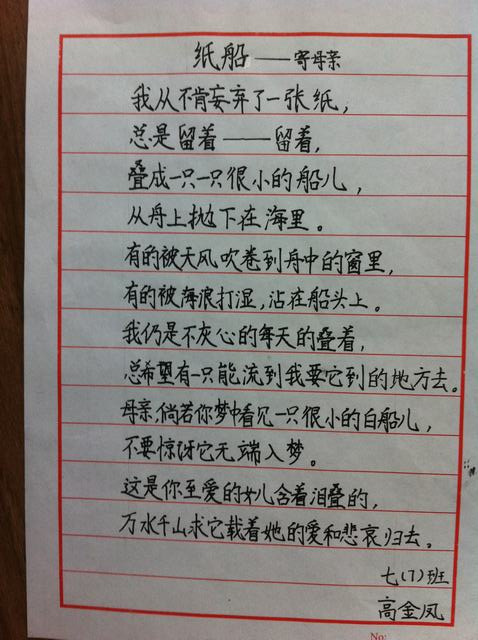 纸船——寄母亲
我从不肯妄弃了一张纸，
总是留着——留着，
叠成一只一只很小的船儿，
从舟上抛下在海里。
有的被天风吹卷到舟中的窗里，
有的被海浪打湿，沾在船头上。
我仍是不灰心的每天的叠着，
总希望有一只能流到我要它到的地方去。
母亲，倘若你梦中看见一只很小的白船儿，
不要惊讶它无端入梦。
这是你至爱的女儿含着泪叠的，
万水千山求它载着她的爱和悲哀归去。
七（7）班
高金凤
No: